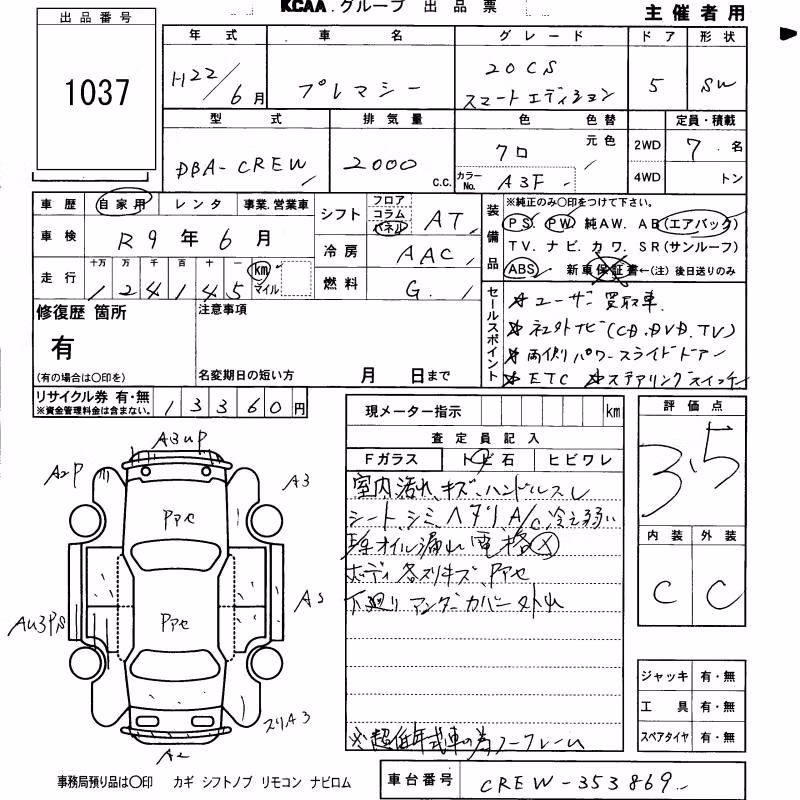 KCAA.グループ 出品票
主催者用
出品番号
1037
年式 車名 グレード ドア 形状
H22/6月 プレマシー 20CS 5 SW
スマートエディション
型式 排気量 色 色替 定員・積載
元色
DBA-CREW 2000 C.C. クロ 2WD 7名
カラーNo. A3F 4WD トン
車歴 自家用 レンタ 事業.営業車
車検 R9年6月
走行 十万 万 千 百 十 一 km マイル
124145
シフト フロア コラム パネル AT
冷房 AAC
燃料 G.
装備品
※純正のみ○印をつけて下さい。
PS. PW. 純AW. AB(エアバック)
TV. ナビ. カワ. SR(サンルーフ)
ABS 新車保証書←(注)後日送りのみ
修復歴 箇所
有
(有の場合は○印を)
注意事項
名変期日の短い方 月 日まで
セールスポイント
ユーザー買取車
社外ナビ(CD.DVD.TV)
両側パワースライドドアー
ETC ステアリングスイッチ
リサイクル券 有・無
※資金管理料金は含まない。
13360円
現メーター指示 km
査定員記入
Fガラス トビ石 ヒビワレ
室内汚れ、キズ、ハンドルスレ
シート、シミ、ヘタリ A/C冷え弱い
オイル漏れ 電格
ボディ各スリキズ、Pアセ
下廻り アンダーカバー外れ
※超低年式車の為ノークレーム
評価点
3.5
内装 外装
C C
ジャッキ 有・無
工具 有・無
スペアタイヤ 有・無
A3UP
A2P
A3
Pアセ
AS
AU3PS
Pアセ
スリA3
A2
事務局預り品は○印 カギ シフトノブ リモコン ナビロム
車台番号 CREW-353869